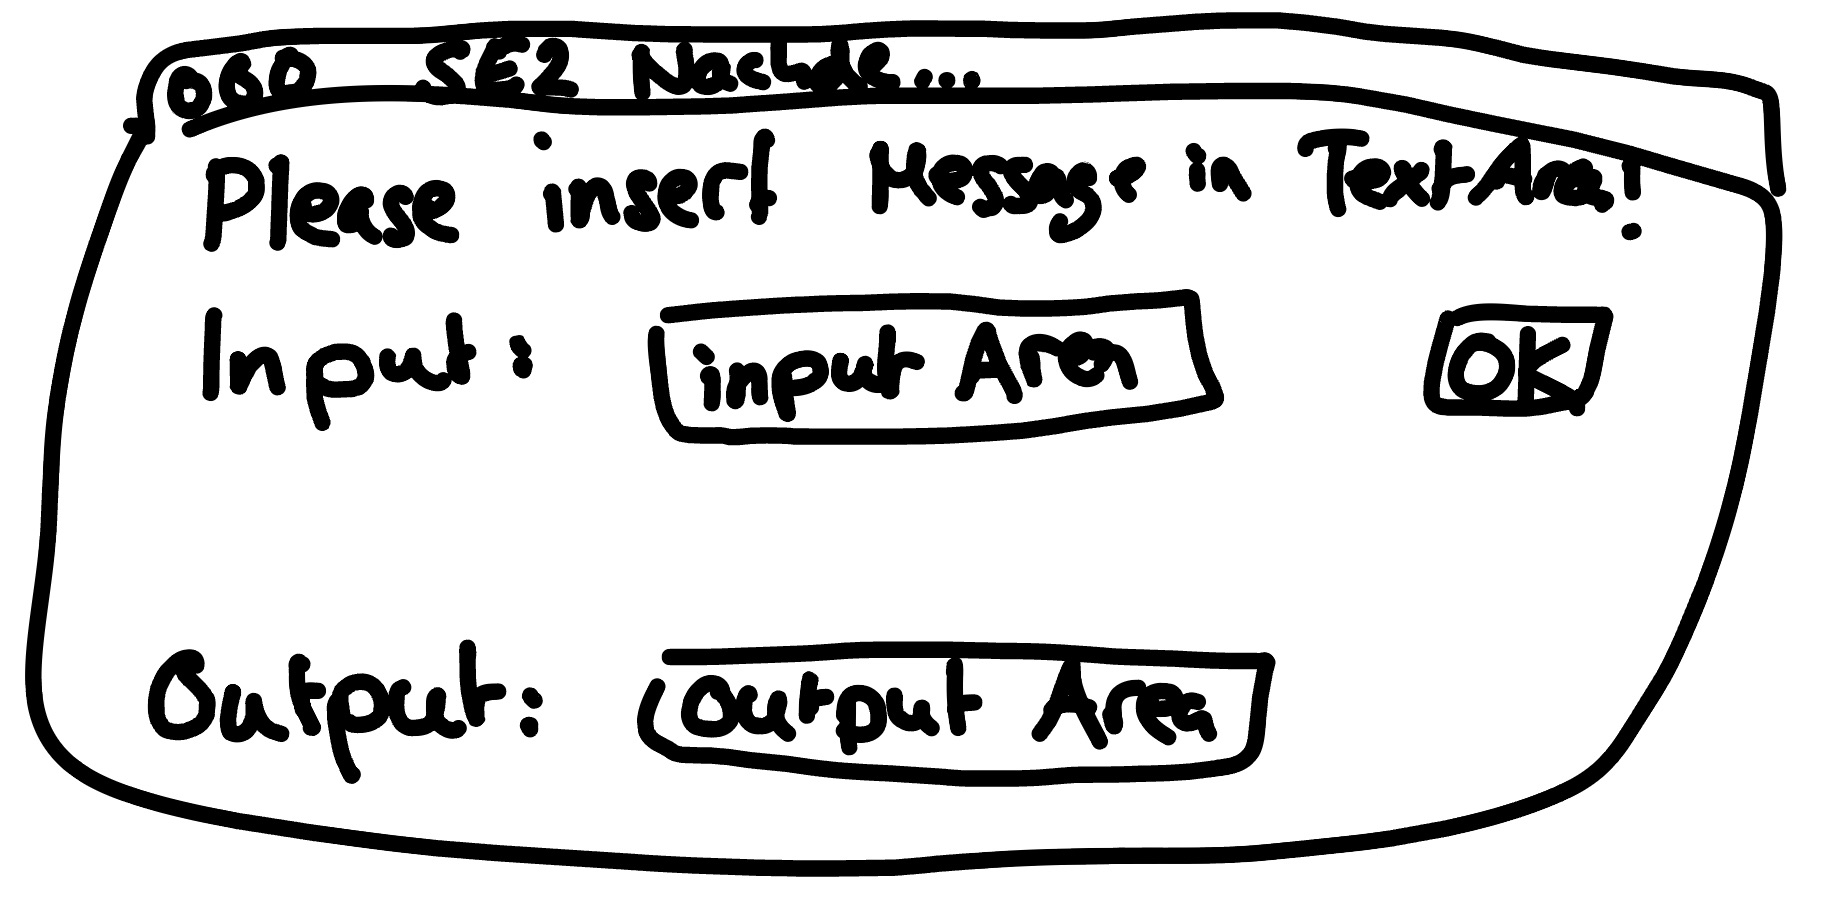 SE2 Nachde...
Please insert Message in TextArea!
Input: input Area OK
Output: Output Area